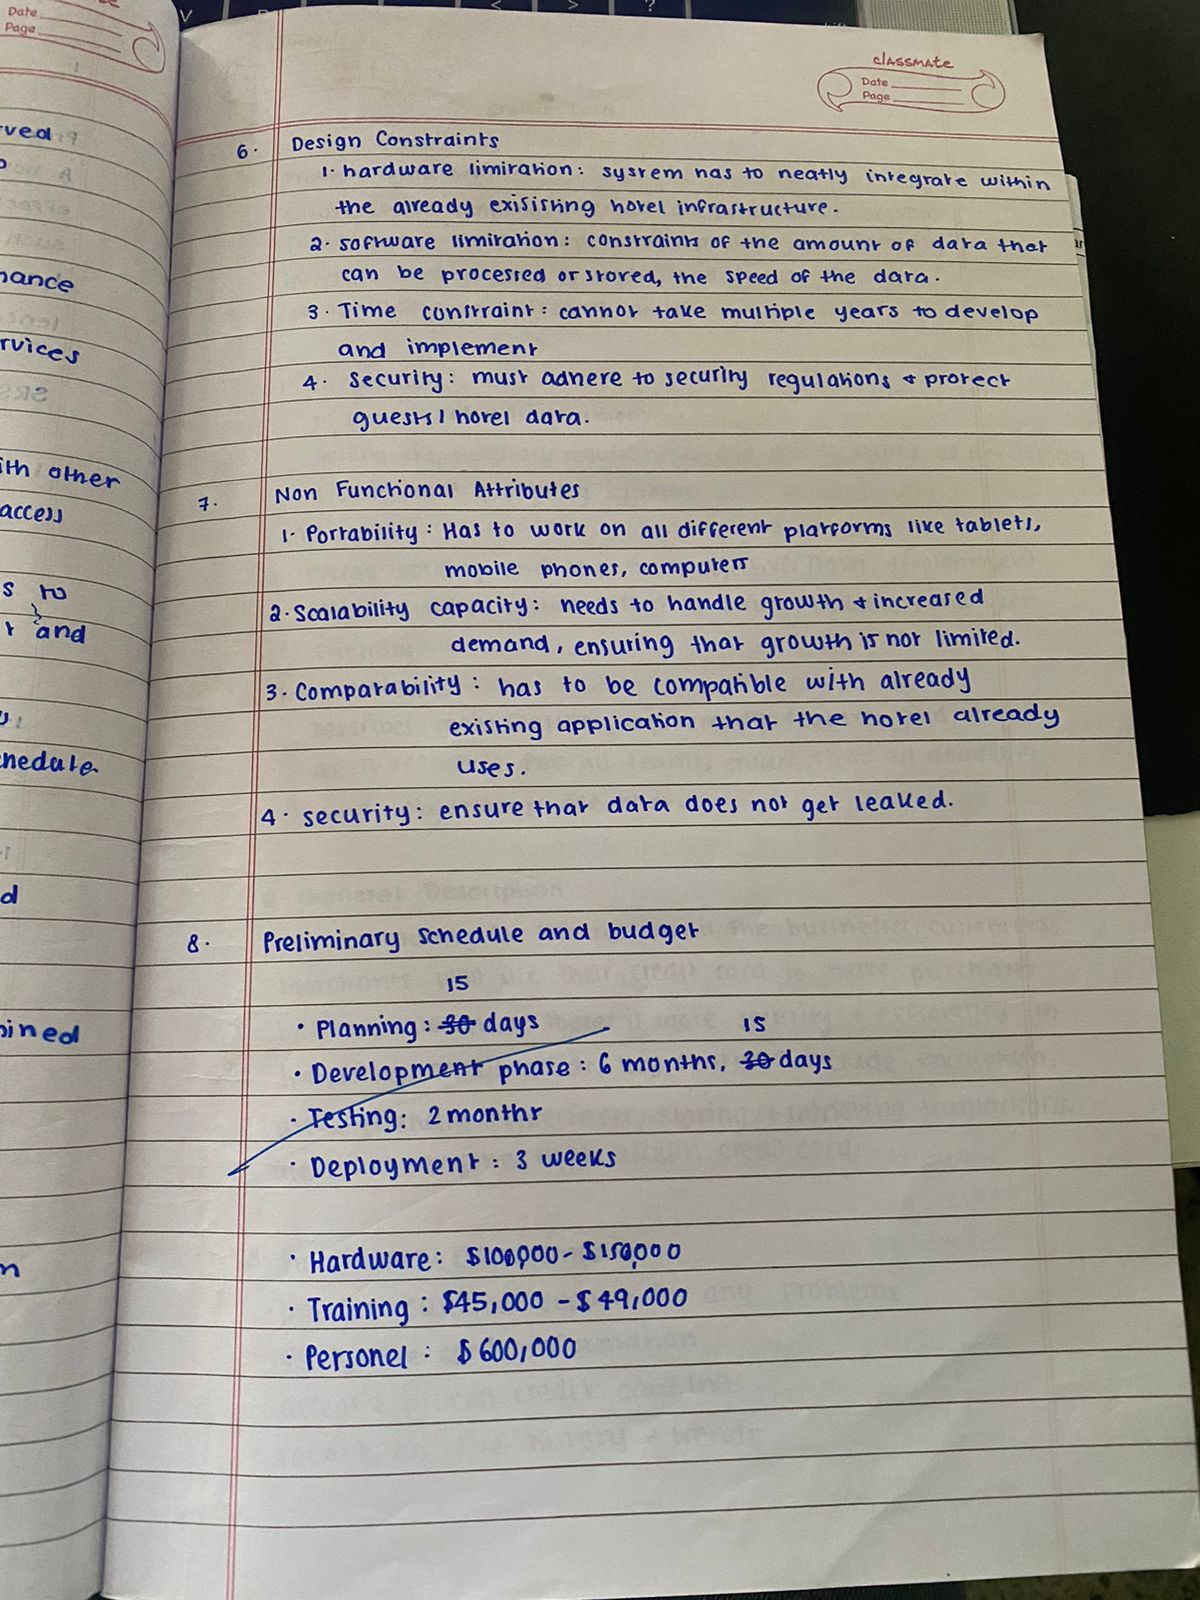 Date
Page
classmate
Date
Page
ved
nance
rvices
ith other
access
s to
r and
nedule
d
ined
n
6. Design Constraints
1. hardware limitation: system has to neatly integrate within
the already exisisting hotel infrastructure.
2. software limitation: constraints of the amount of data that
can be processed or stored, the speed of the data.
3. Time constraint: cannot take multiple years to develop
and implement
4. Security: must adhere to security regulations & protect
guests / hotel data.
7. Non Functional Attributes
1. Portability: Has to work on all different platforms like tablets,
mobile phones, computers
2. Scalability capacity: needs to handle growth & increased
demand, ensuring that growth is not limited.
3. Compatability: has to be compatible with already
existing application that the hotel already
uses.
4. security: ensure that data does not get leaked.
8. Preliminary schedule and budget
15
• Planning: 30 days
15
• Development phase: 6 months, 30 days
• Testing: 2 months
• Deployment: 3 weeks
• Hardware: $100,000 - $150,000
• Training: $45,000 - $49,000
• Personel: $600,000